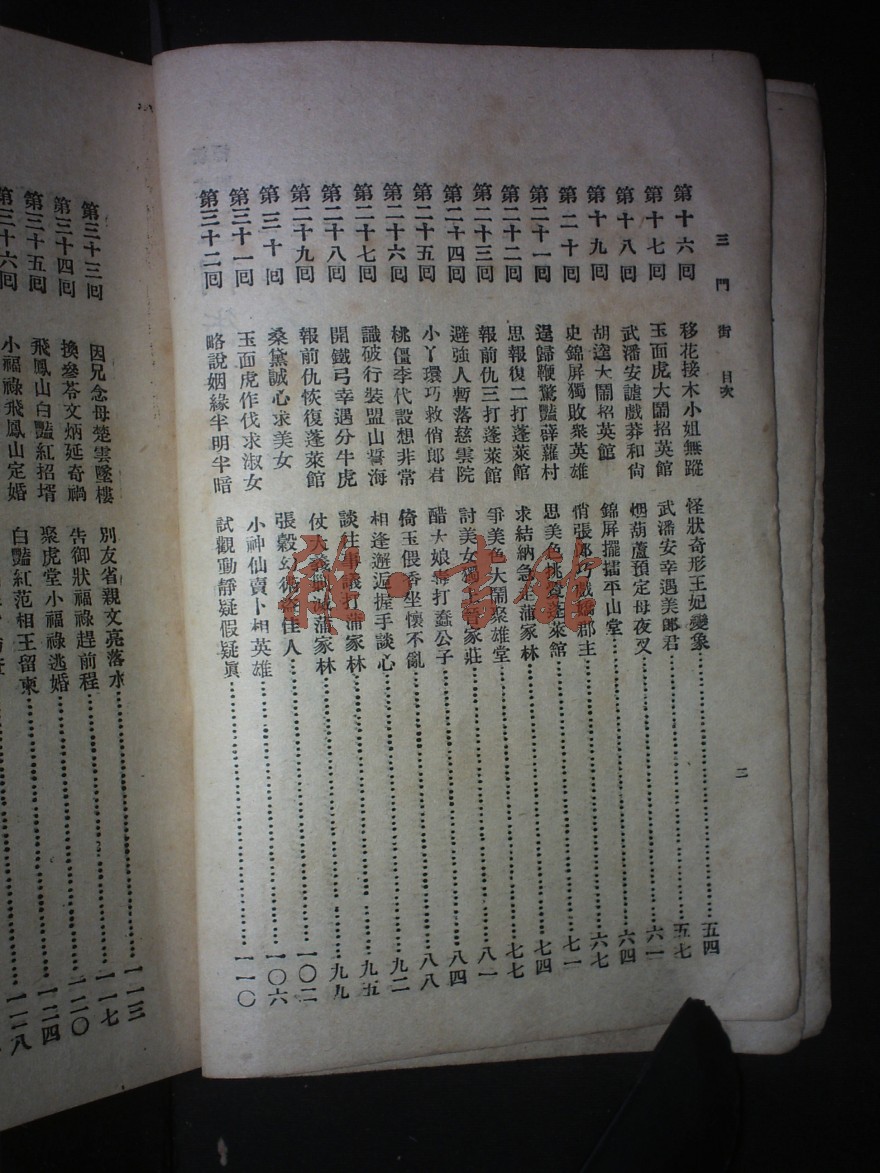 三門街 目次 二
第十六回 移花接木小姐無蹤 怪狀奇形王妃變象 五四
第十七回 玉面虎大鬧招英館 武潘安幸遇美郎君 五七
第十八回 武潘安謔戲莽和尙 烟葫蘆預定母夜叉 六一
第十九回 胡逵大鬧招英館 錦屏擺擂平山堂 六四
第二十回 史錦屏獨敗衆英雄 俏張郎巧戲 郡主 六七
第二十一回 還歸鞭驚豔薜蘿村 思美色桃 蓬萊館 七一
第二十二回 思報復二打蓬萊館 求結納急 蒲家林 七四
第二十三回 報前仇三打蓬萊館 爭美色大鬧聚雄堂 七七
第二十四回 避強人暫落慈雲院 討美女獨上管家莊 八一
第二十五回 小丫環巧救俏郎君 醋大娘毒打蠢公子 八四
第二十六回 桃僵李代設想非常 倚玉偎香坐懷不亂 八八
第二十七回 識破行裝盟山誓海 相逢邂逅握手談心 九二
第二十八回 開鐵弓幸遇分牛虎 談往事議打蒲家林 九五
第二十九回 報前仇恢復蓬萊館 仗大義 滅蒲家林 九九
第三十回 桑黛誠心求美女 張縠幻術 佳人 一〇二
第三十一回 玉面虎作伐求淑女 小神仙賣卜相英雄 一〇六
第三十二回 略說姻緣半明半暗 試觀動靜疑假疑眞 一一〇
第三十三回 因兄念母楚雲墜樓 別友省親文亮落水 一一三
第三十四回 換參苓文炳延奇禍 吿御狀福祿趕前程 一一七
第三十五回 飛鳳山白豔紅招壻 聚虎堂小福祿逃婚 一二〇
第三十六回 小福祿飛鳳山定婚 白豔紅范相王留柬 一二四
一二八
雅·書館